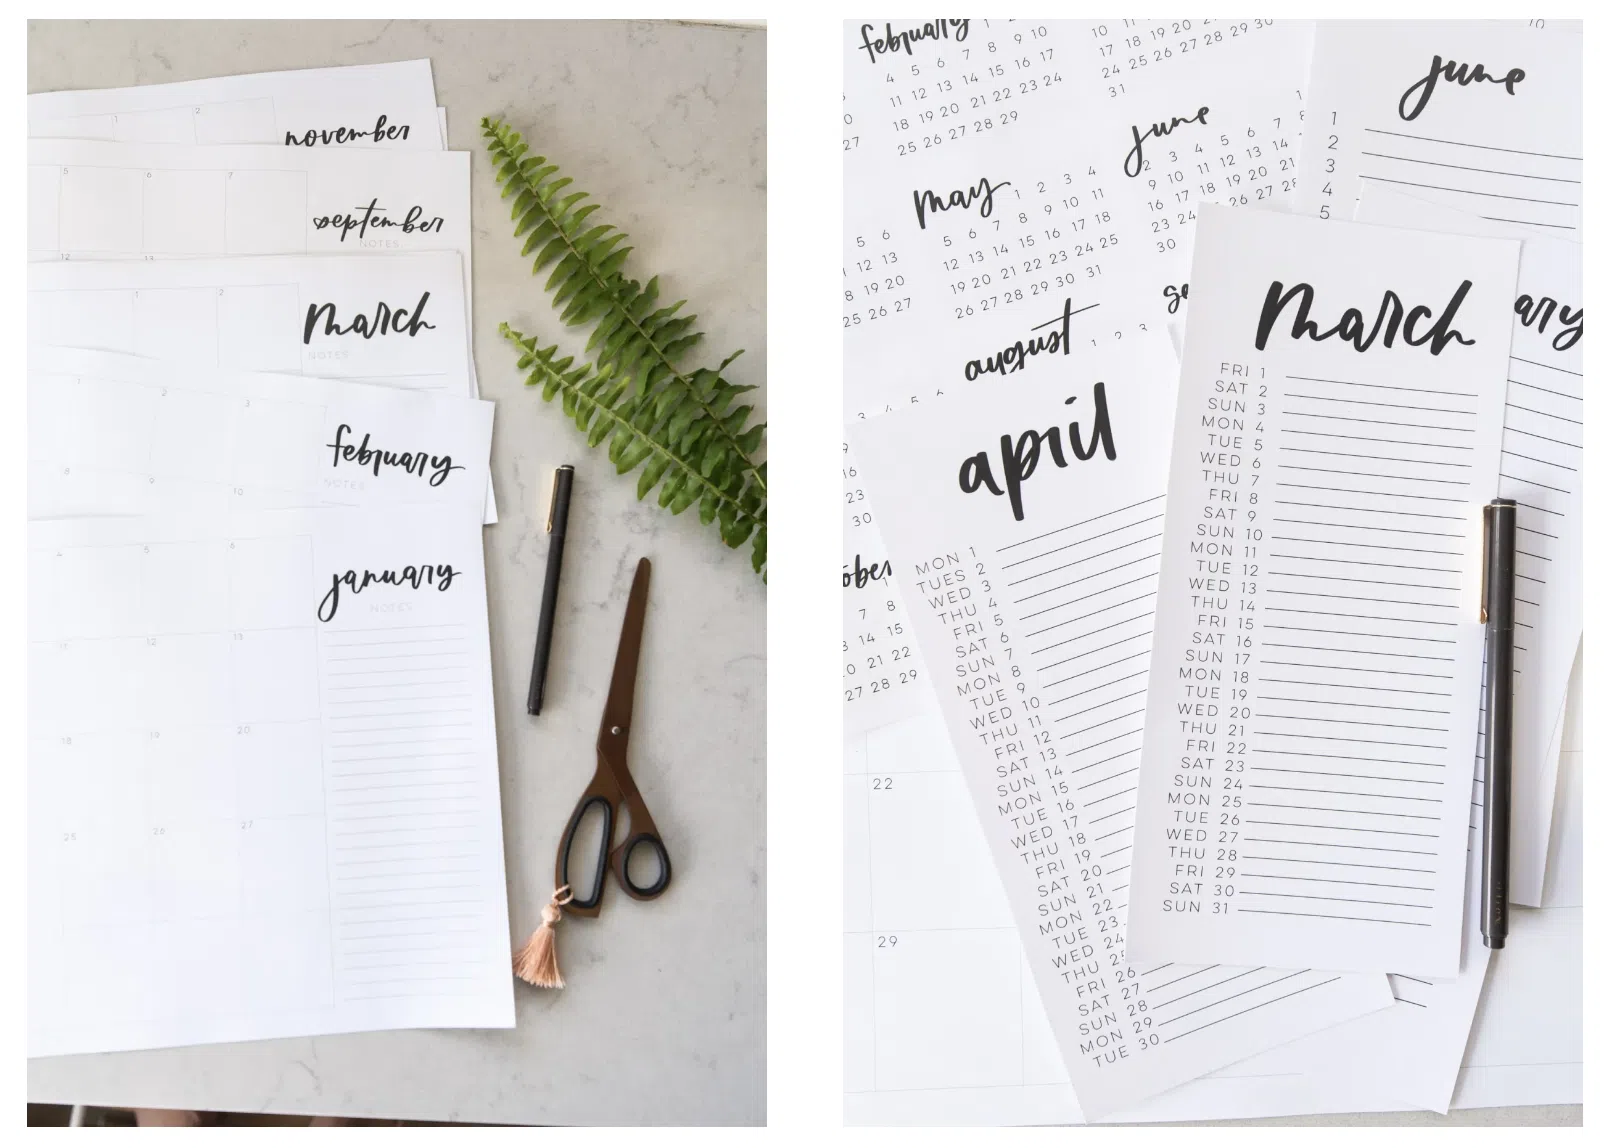 november
1
2
september
NOTES
5
6
7
12
13
march
NOTES
1
2
february
NOTES
1
2
3
8
9
10
january
NOTES
4
5
6
11
12
13
18
19
20
25
26
27
february
1
4 5 6 7 8 9 10
11 12 13 14 15 16 17
18 19 20 21 22 23 24
25 26 27 28 29
27
10 11
17 18 19 20 21 22 23
24 25 26 27 28 29 30
31
may
1 2 3 4
5 6 7 8 9 10 11
12 13 14 15 16 17 18
19 20 21 22 23 24 25
26 27 28 29 30 31
june
1
2 3 4 5 6 7 8
9 10 11 12 13 14
16 17 18 19 20 21
23 24 26 27 28
30
5 6
12 13
19 20
25 26 27
august
1 2 3
3 4 5 6
16
23
30
7 8
14 15
20 21 22
27 28 29
22
29
june
1
2
3
4
5
april
MON 1
TUES 2
WED 3
THU 4
FRI 5
SAT 6
SUN 7
MON 8
TUE 9
WED 10
THU 11
FRI 12
SAT 13
SUN 14
MON 15
TUE 16
WED 17
THU 18
FRI 19
SAT 20
SUN 21
MON 22
TUE 23
WED 24
THU 25
FRI 26
SAT 27
SUN 28
MON 29
TUE 30
march
FRI 1
SAT 2
SUN 3
MON 4
TUE 5
WED 6
THU 7
FRI 8
SAT 9
SUN 10
MON 11
TUE 12
WED 13
THU 14
FRI 15
SAT 16
SUN 17
MON 18
TUE 19
WED 20
THU 21
FRI 22
SAT 23
SUN 24
MON 25
TUE 26
WED 27
THU 28
FRI 29
SAT 30
SUN 31